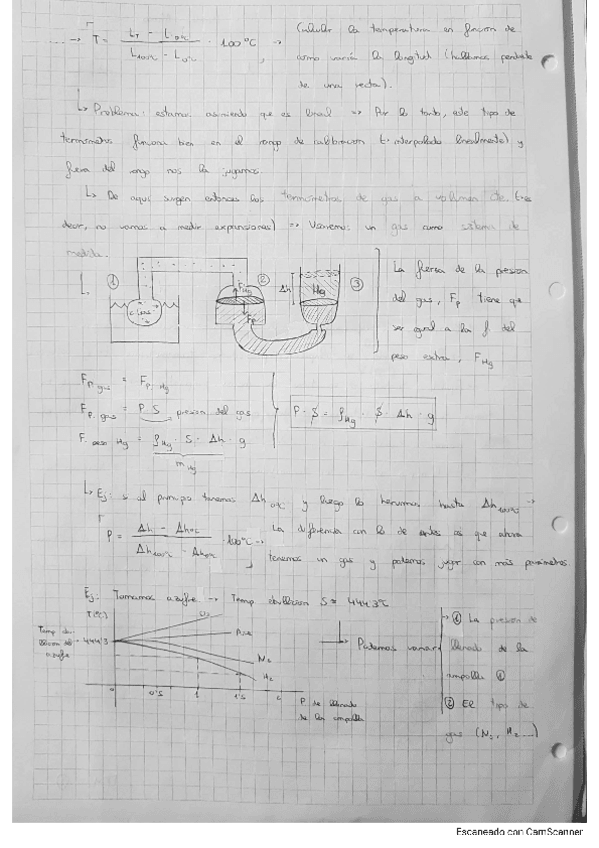 → T = (L_T − L_0°C) / (L_100°C − L_0°C) · 100°C →
Calcular la temperatura en función de
como varía la longitud (hallamos pendiente
de una recta).
↳ Problema: estamos asumiendo que es lineal ⇒ Por lo tanto, este tipo de
termómetros funciona bien en el rango de calibración (interpolado linealmente) y
fuera del rango nos la jugamos
↳ De aquí surgen entonces los termómetros de gas a volumen cte. (es
decir, no vamos a medir expansiones) ⇒ Usaremos un gas como sistema de
medida.
① ② ③
Gas
F_Hg
F_P
Δh
Hg
La fuerza de la presión
del gas, F_P tiene que
ser igual a la f. del
peso extra, F_Hg
F_P gas = F_P Hg
F_P. gas = P S presión del gas
F. peso Hg = ρ_Hg · S · Δh · g
m_Hg
P · S = ρ_Hg · S · Δh · g
↳ Ej: si al principio tenemos Δh_0°C y luego lo hervimos hasta Δh_100°C →
P = (Δh − Δh_0°C) / (Δh_100°C − Δh_0°C) · 100°C →
La diferencia con lo de antes es que ahora
tenemos un gas y podemos jugar con más parámetros
Ej: Tomamos azufre → Temp ebullición S = 444'3°C
T(°C)
O_2
Aire
N_2
H_2
Temp de
ebullición del
azufre
444'3
0 0'5 1 1'5
P de llenado
de la ampolla
Podemos variar
① La presión de
llenado de la
ampolla ①
② El tipo de
gas (N_2, H_2 ...)
Escaneado con CamScanner